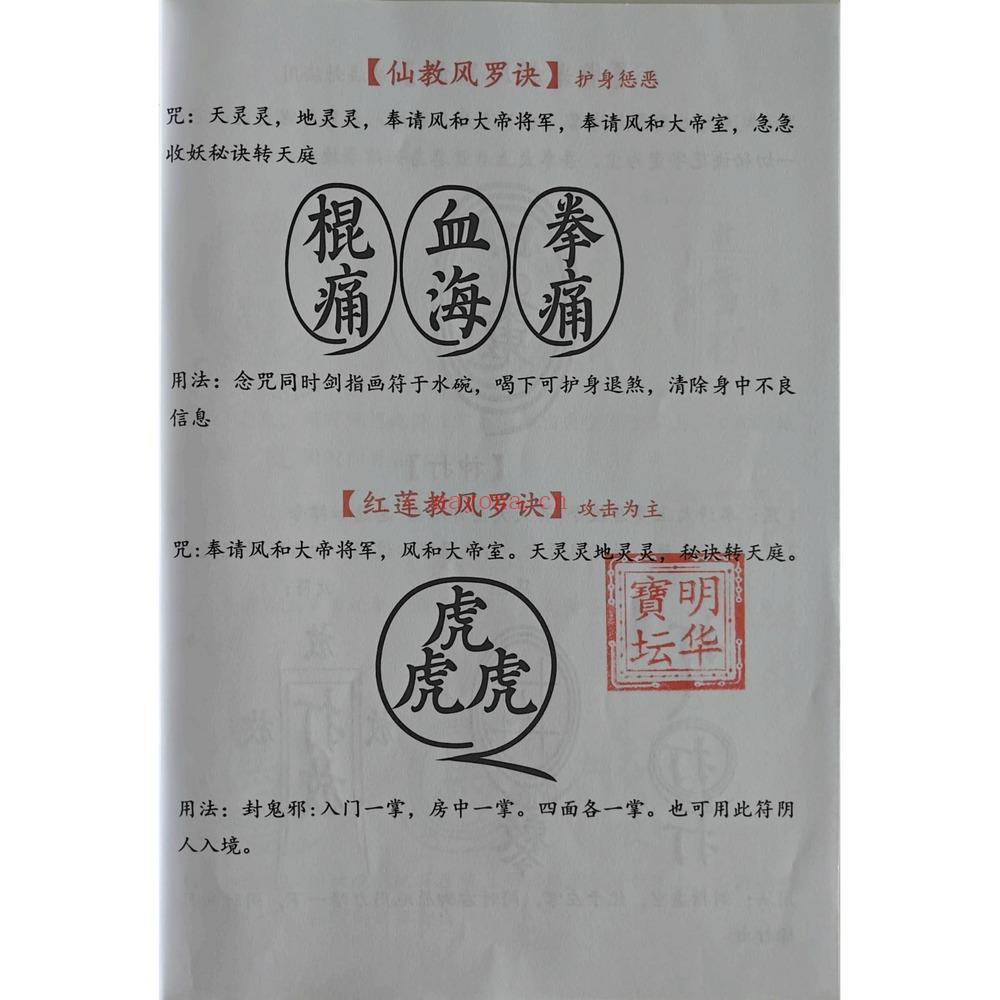 【仙教风罗诀】护身惩恶
咒：天灵灵，地灵灵，奉请风和大帝将军，奉请风和大帝室，急急
收妖秘诀转天庭
棍痛 血海 拳痛
用法：念咒同时剑指画符于水碗，喝下可护身退煞，清除身中不良
信息
【红莲教风罗诀】攻击为主
咒:奉请风和大帝将军，风和大帝室。天灵灵地灵灵，秘诀转天庭。
明华
寶坛
虎
虎虎
用法：封鬼邪:入门一掌，房中一掌。四面各一掌。也可用此符阴
人入境。